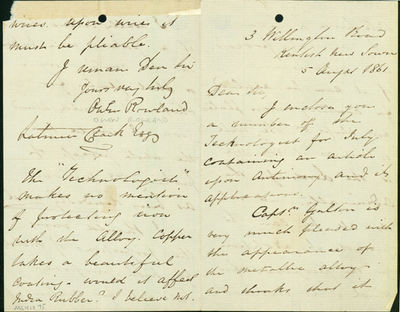 3 Wellington Road
Kentish New Town
5 August 1861
Dear Sir
I enclose you
a number of the
Technologist for July
containing an article
upon Antimony and its
applications.
Captn Galton is
very much pleased with
the appearance of
the metallic alloy
and thinks that it
wires upon wires it
must be pliable.
I remain Dear Sir
Yours very truly
Owen Rowland
Latimer Clark Esq
The "Technologist"
makes no mention
of protecting iron
with the Alloy. Copper
takes a beautiful
coating - would it affect
India Rubber? I believe not.